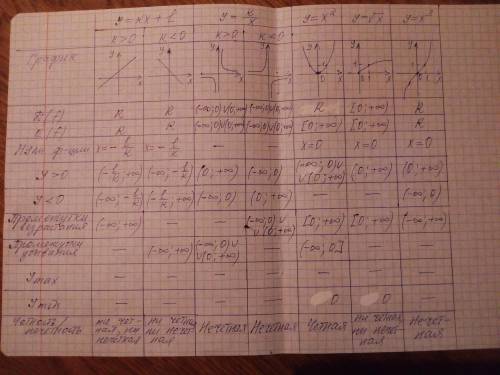 y = kx + b y = k/x y = x² y = √x y = x³
k>0 k<0 k>0 k<0
График
D(f) R R (-∞;0)U(0;+∞) (-∞;0)U(0;+∞) R [0;+∞) R
E(f) R R (-∞;0)U(0;+∞) (-∞;0)U(0;+∞) [0;+∞) [0;+∞) R
Нули ф-ции x=-b/k x=-b/k — — x=0 x=0 x=0
y>0 (-b/k;+∞) (-∞;-b/k) (0;+∞) (-∞;0) (-∞;0)U U(0;+∞) (0;+∞) (0;+∞)
y<0 (-∞;-b/k) (-b/k;+∞) (-∞;0) (0;+∞) — — (-∞;0)
Промежутки возрастания (-∞;+∞) — — (-∞;0)U U(0;+∞) [0;+∞) [0;+∞) (-∞;+∞)
Промежутки убывания — (-∞;+∞) (-∞;0)U U(0;+∞) — (-∞;0] — —
y max — — — — — — —
y min — — — — 0 0 —
Четность/нечетность ни чет-ная, ни нечетная ни четная ни нечет-ная Нечетная Нечетная Четная ни четная ни нечет-ная Нечет-ная